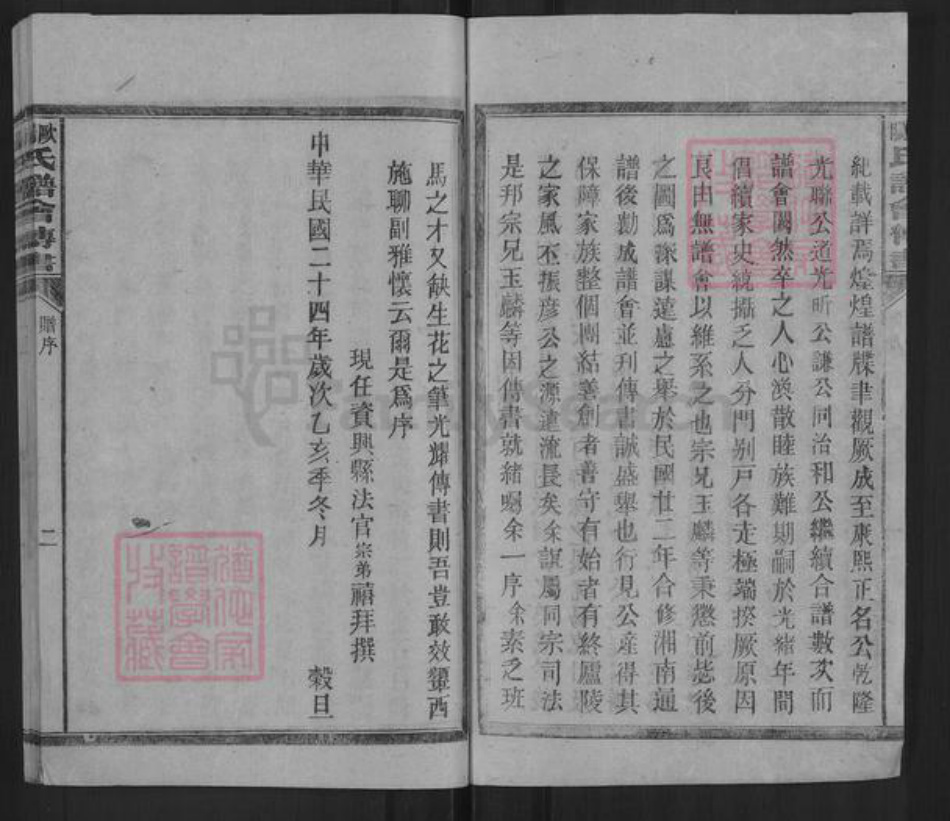 紀載詳焉煌煌譜牒聿觀厥成至康熙正名公乾隆
光聯公道光昕公謙公同治和公繼續合譜數次而
譜會闃然卒之人心渙散睦族難期嗣於光緒年間
倡續家史統攝乏人分門別戸各走極端揆厥原因
良由無譜會以維系之也宗兄玉麟等秉懲前毖後
之圖爲深謀遠慮之舉於民國廿二年合修湘南通
譜後勷成譜會並刊傳書誠盛舉也行見公産得其
保障家族整個團結善創者善守有始者有終廬陵
之家風丕振彦公之源遠流長矣余誼屬同宗司法
是邦宗兄玉麟等因傳書就緒囑余一序余素乏班
歐氏譜會傳書
贈序
二
馬之才又缺生花之筆光耀傳書則吾豈敢效顰西
施聊副雅懷云爾是爲序
現任資興縣法官宗弟禧拜撰
中華民國二十四年歲次乙亥季冬月 穀旦